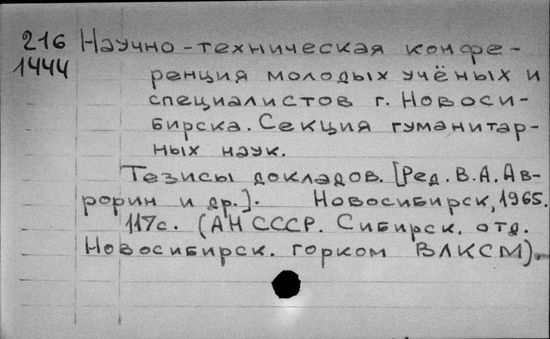 216 Научно-техническая конфе-
1444 ренция молодых учёных и
специалистов г. Новоси-
бирска. Секция гуманитар-
ных наук.
Тезисы докладов. [Ред. В.А. Ав-
рорин и др.]. Новосибирск, 1965.
117с. (АН СССР. Сибирск. отд.
Новосибирск. горком ВЛКСМ).